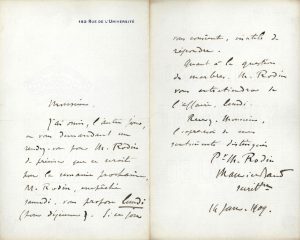 182 RUE DE L'UNIVERSITÉ
Monsieur,
J'ai omis, l'autre jour,
en vous demandant un
rendez-vous pour M. Rodin
de préciser que ce serait
pour la semaine prochaine.
M. Rodin, empêché
samedi, vous propose lundi
(pour déjeuner). Si ce jour
vous convient, inutile de
répondre.
Quant à la question
des marbres, M. Rodin
vous entretiendra de
l'affaire, lundi.
Recevez, Monsieur,
l'expression de mes
sentiments distingués
Pr M. Rodin
14 janv. 1909.